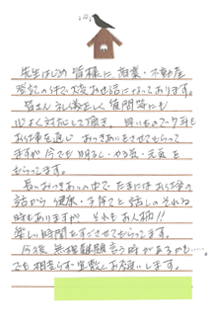 先生はじめ 皆様に、商業・不動産
登記の件で大変お世話になっております。
皆さん礼儀正しく質問等にも
心よく対応して頂き、
お仕事を通じ お付きあいをさせてもらって
ますが今でも明るさ・やる気・元気を
もらってます。
長いお付きあいの中で たまにはお仕事の
話から 健康・子育てと話しのそれる
時もありますが それもお人柄!!
楽しい時間をすごさせてもらってます。
今後 無理難題言う時があるかも……。
でも相変らず宜敷くお願いします。